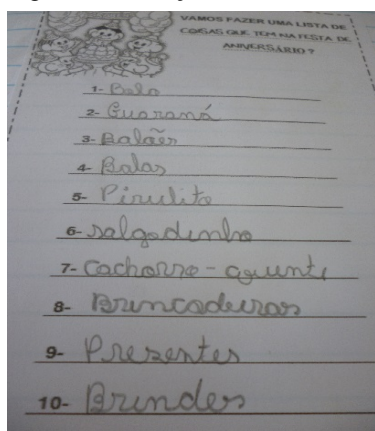 VAMOS FAZER UMA LISTA DE
COISAS QUE TEM NA FESTA DE
ANIVERSÁRIO?
1- Bolo
2- Guaraná
3- Balões
4- Balas
5- Pirulito
6- salgadinho
7- Cachorro - quente
8- Brincadeiras
9- Presentes
10- Brindes